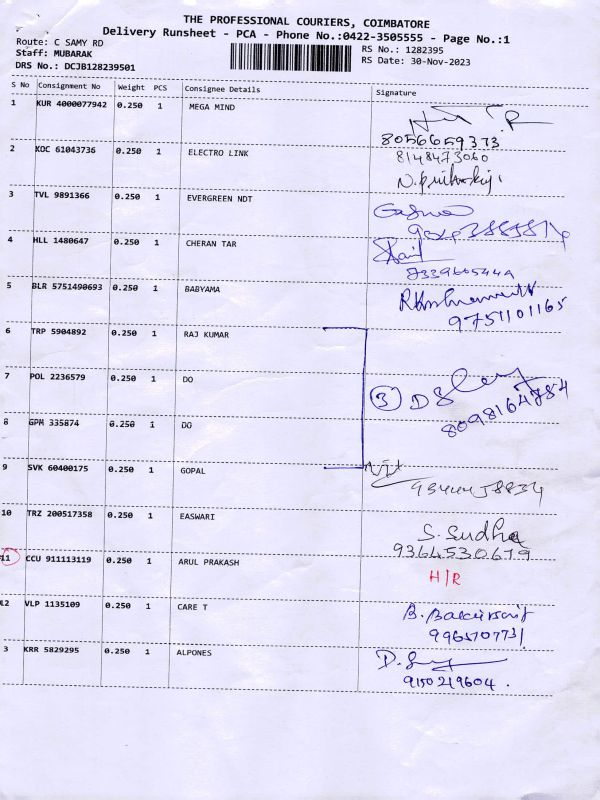 THE PROFESSIONAL COURIERS, COIMBATORE
Delivery Runsheet - PCA - Phone No.:0422-3505555 - Page No.:1
Route: C SAMY RD
Staff: MUBARAK
DRS No.: DCJB128239501
RS No.: 1282395
RS Date: 30-Nov-2023
S No Consignment No Weight PCS Consignee Details Signature
1 KUR 4000077942 0.250 1 MEGA MIND
8056659373
2 KOC 61043736 0.250 1 ELECTRO LINK 8148473060
3 TVL 9891366 0.250 1 EVERGREEN NDT
4 HLL 1480647 0.250 1 CHERAN TAR
5 BLR 5751490693 0.250 1 BABYAMA
9751101165
6 TRP 5904892 0.250 1 RAJ KUMAR
7 POL 2236579 0.250 1 DO 3
8098164784
8 GPM 335874 0.250 1 DO
9 SVK 60400175 1 GOPAL
10 TRZ 200517358 0.250 1 EASWARI S. Sudha
9364530679
11 CCU 911113119 0.250 1 ARUL PRAKASH H/R
12 VLP 1135109 0.250 1 CARE T
9965707731
3 KRR 5829295 0.250 1 ALPONES
9150219604.